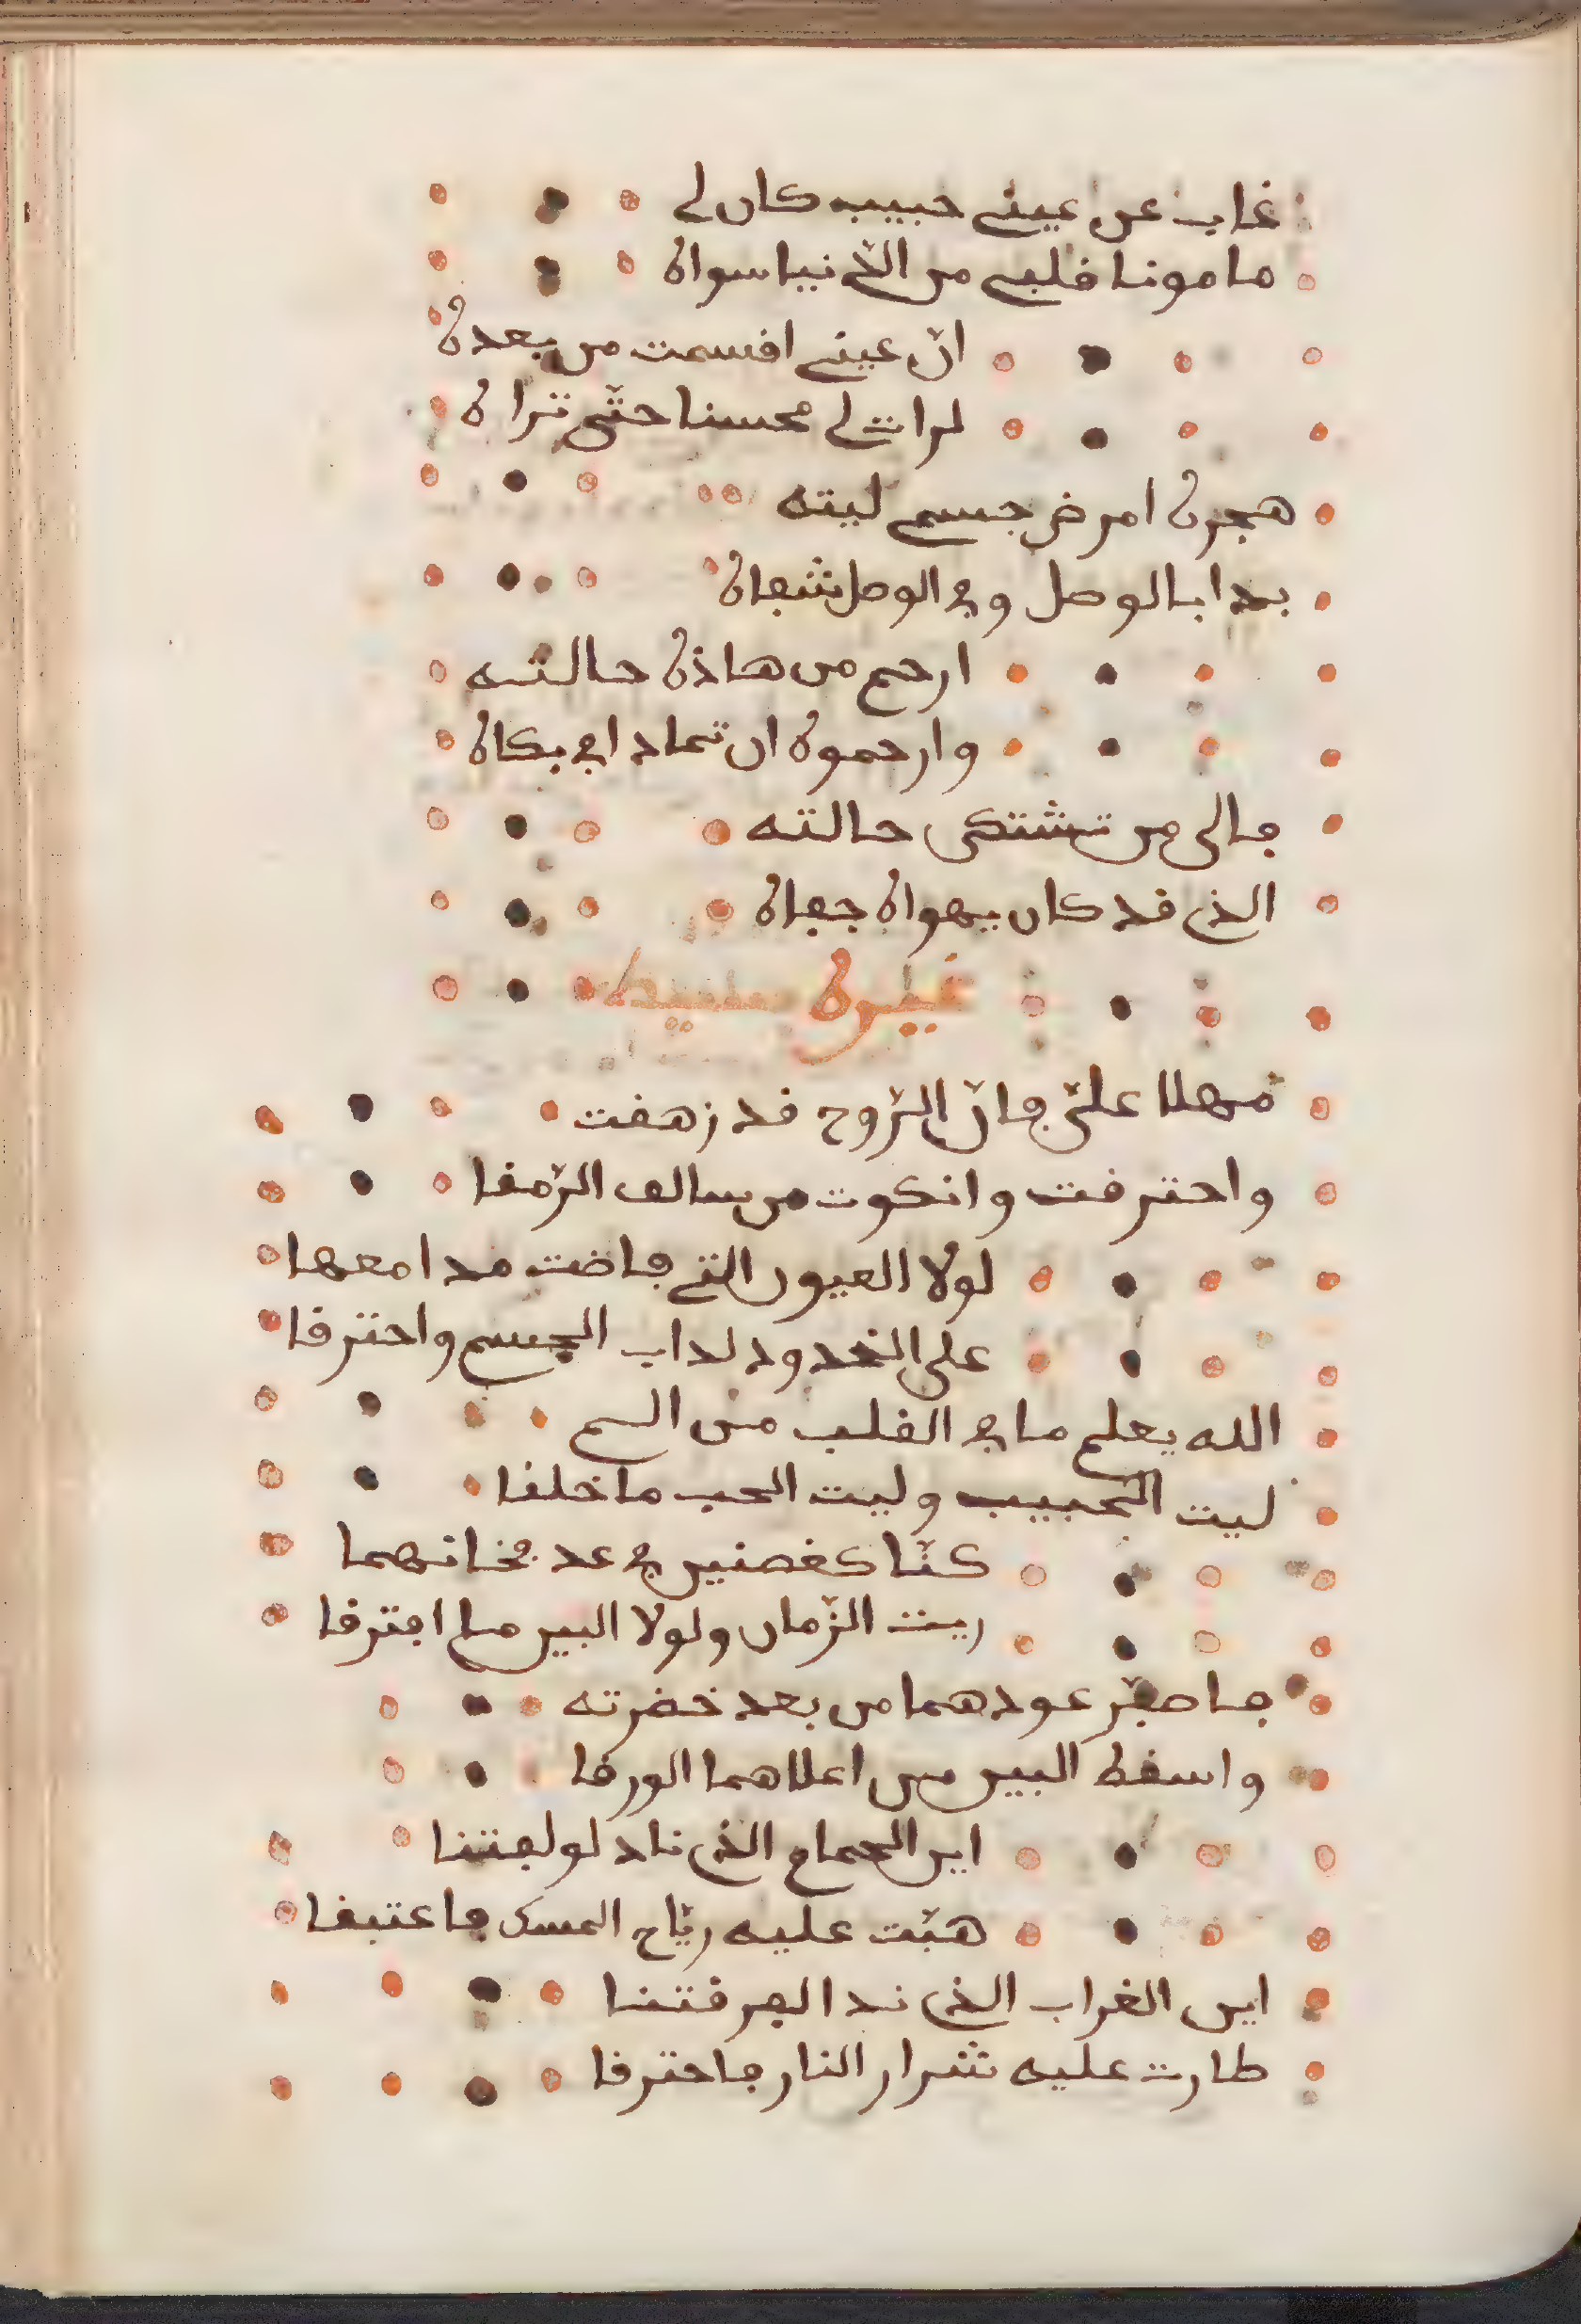 غاب عن عيني حبيب كان لي
ما مونا قلبي من الدنيا سواه
ان عيني اقسمت من بعده
لرات لي محسنا حتى تراه
هجره امرض جسمي ليته
بدا بالوصل وفي الوصل شفاه
ارحم من هاذه حالته
وارحموه ان تمادا في بكاه
فالى من تشتكى حالته
الذي قد كان يهواه جفاه
غيره بسيط
مهلا علىّ فانّ الرّوح قد زهقت
واحترقت وانكوت من سالف الرّمقا
لولا العيون التي فاضت مدامعها
على الخدود لداب الجسم واحترقا
الله يعلم ما في القلب من الم
ليت الحبيب وليت الحب ما خلقا
كنّا كغصنين في عد فخانهما
ريت الزّمان ولولا البين ما افترقا
فاصفرّ عودهما من بعد خضرته
واسقط البين من اعلاهما الورقا
اين الحمام الذي ناد لولفتنا
هبّت عليه ريّاح المسك فاعتبقا
اين الغراب الذي ندا لفرقتنا
طارت عليه شرار النار فاحترقا